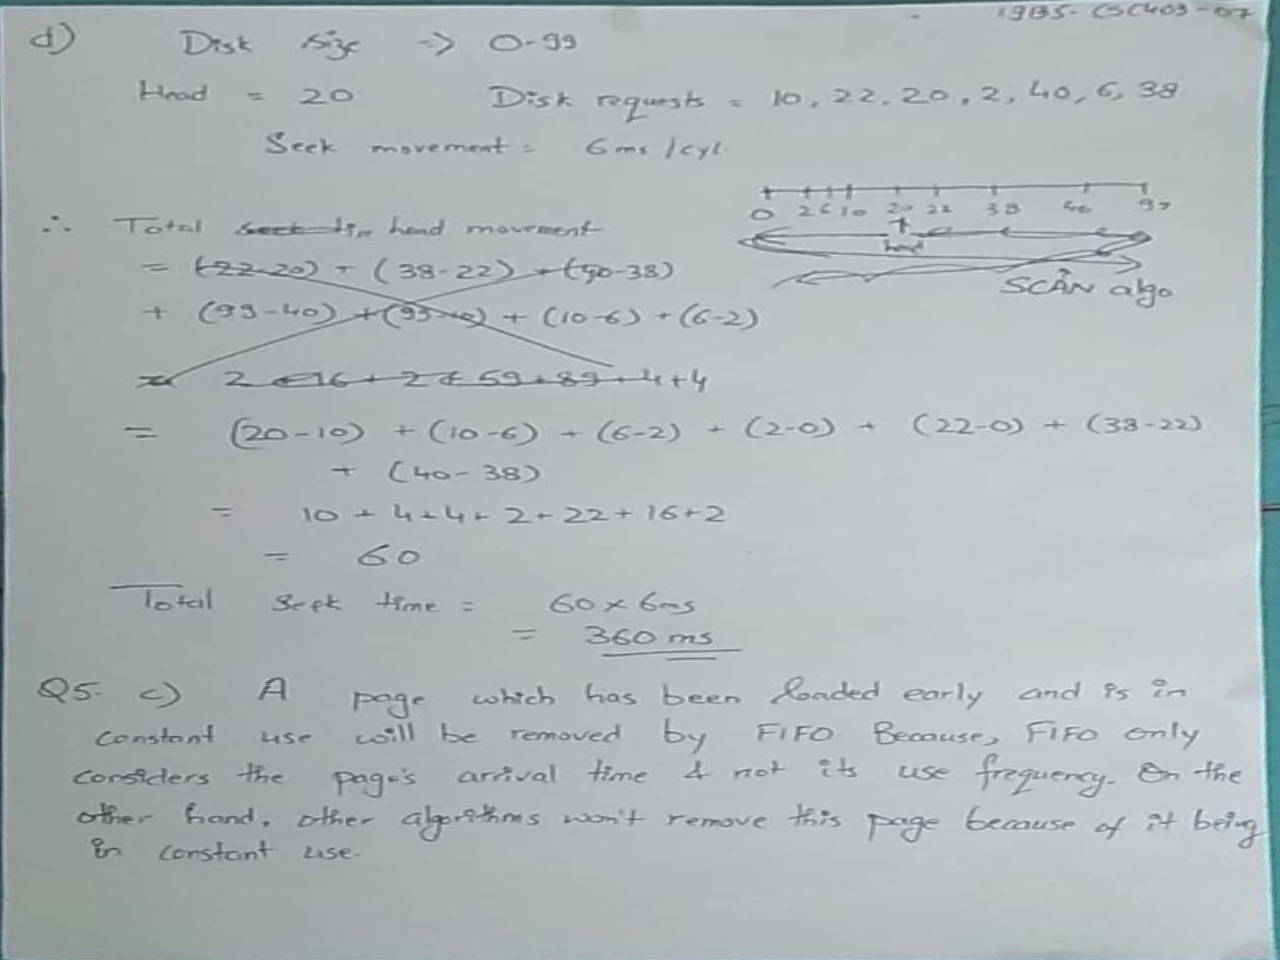 19BS-CSC403-07
d) Disk size => 0-99
Head = 20 Disk requests = 10, 22, 20, 2, 40, 6, 38
Seek movement = 6ms/cyl
0 2 6 10 20 22 38 40 99
head
SCAN algo
∴ Total head movement
= (22-20) + (38-22) + (40-38)
+ (99-40) + (99-10) + (10-6) + (6-2)
= 2 + 16 + 2 + 59 + 89 + 4 + 4
= (20-10) + (10-6) + (6-2) + (2-0) + (22-0) + (38-22)
+ (40-38)
= 10 + 4 + 4 + 2 + 22 + 16 + 2
= 60
Total Seek time = 60 x 6ms
= 360 ms
Q5. c) A page which has been loaded early and is in
constant use will be removed by FIFO Because, FIFO only
considers the page's arrival time & not its use frequency. On the
other hand, other algorithms won't remove this page because of it being
in constant use.